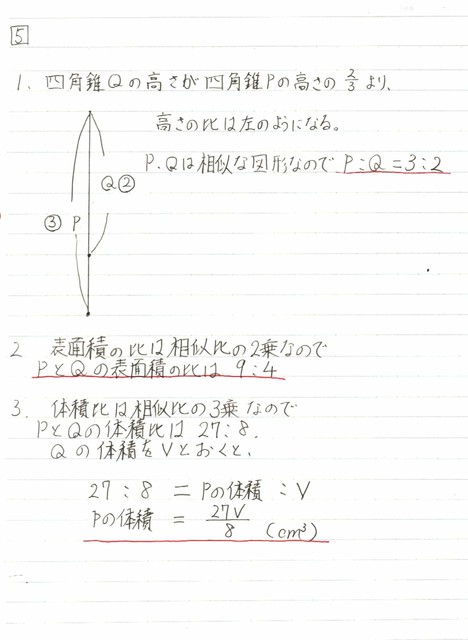 5
1. 四角錐Qの高さが四角錐Pの高さの 2/3 より、
高さの比は左のようになる。
P.Qは相似な図形なので P:Q=3:2
Q②
③ P
2 表面積の比は相似比の2乗なので
PとQの表面積の比は 9:4
3. 体積比は相似比の3乗なので
PとQの体積比は 27:8.
Qの体積をVとおくと、
27:8 = Pの体積:V
Pの体積 = 27V/8 (cm³)